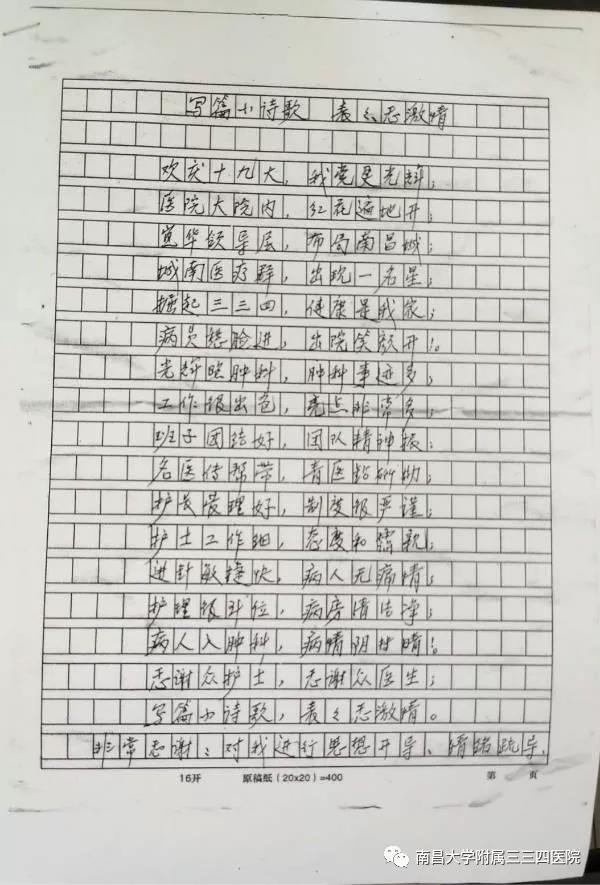 写篇小诗歌 表表感激情
欢庆十九大，我党更光辉；
医院大院内，红花遍地开；
领导层，布局南昌城；
城南医疗群，出现一名星；
掘起三三四，健康是我家；
病员愁脸进，出院笑颜开！。
光辉照肿科，肿科事迹多；
工作很出色，亮点非常多；
班子团结好，团队精神振；
名医传帮带，青医钻研勤；
护长管理好，制度很严谨；
护士工作细，态度和蔼亲；
进针敏捷快，病人无痛情；
护理很到位，病房清洁净；
病人入肿科，病情阴转晴！。
感谢众护士，感谢众医生；
写篇小诗歌，表表感激情。
非常感谢：对我进行思想开导、情绪疏导。
16开 原稿纸（20x20）=400 第 页
南昌大学附属三三四医院